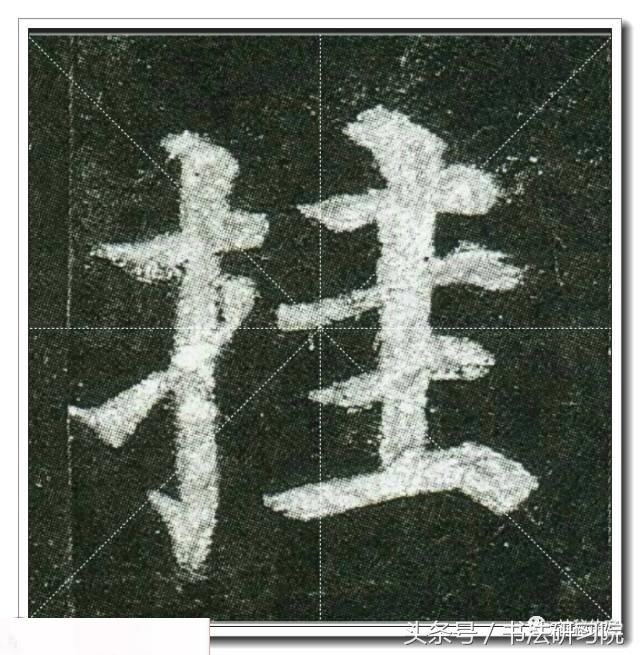 挂
头条号 / 书法研习院